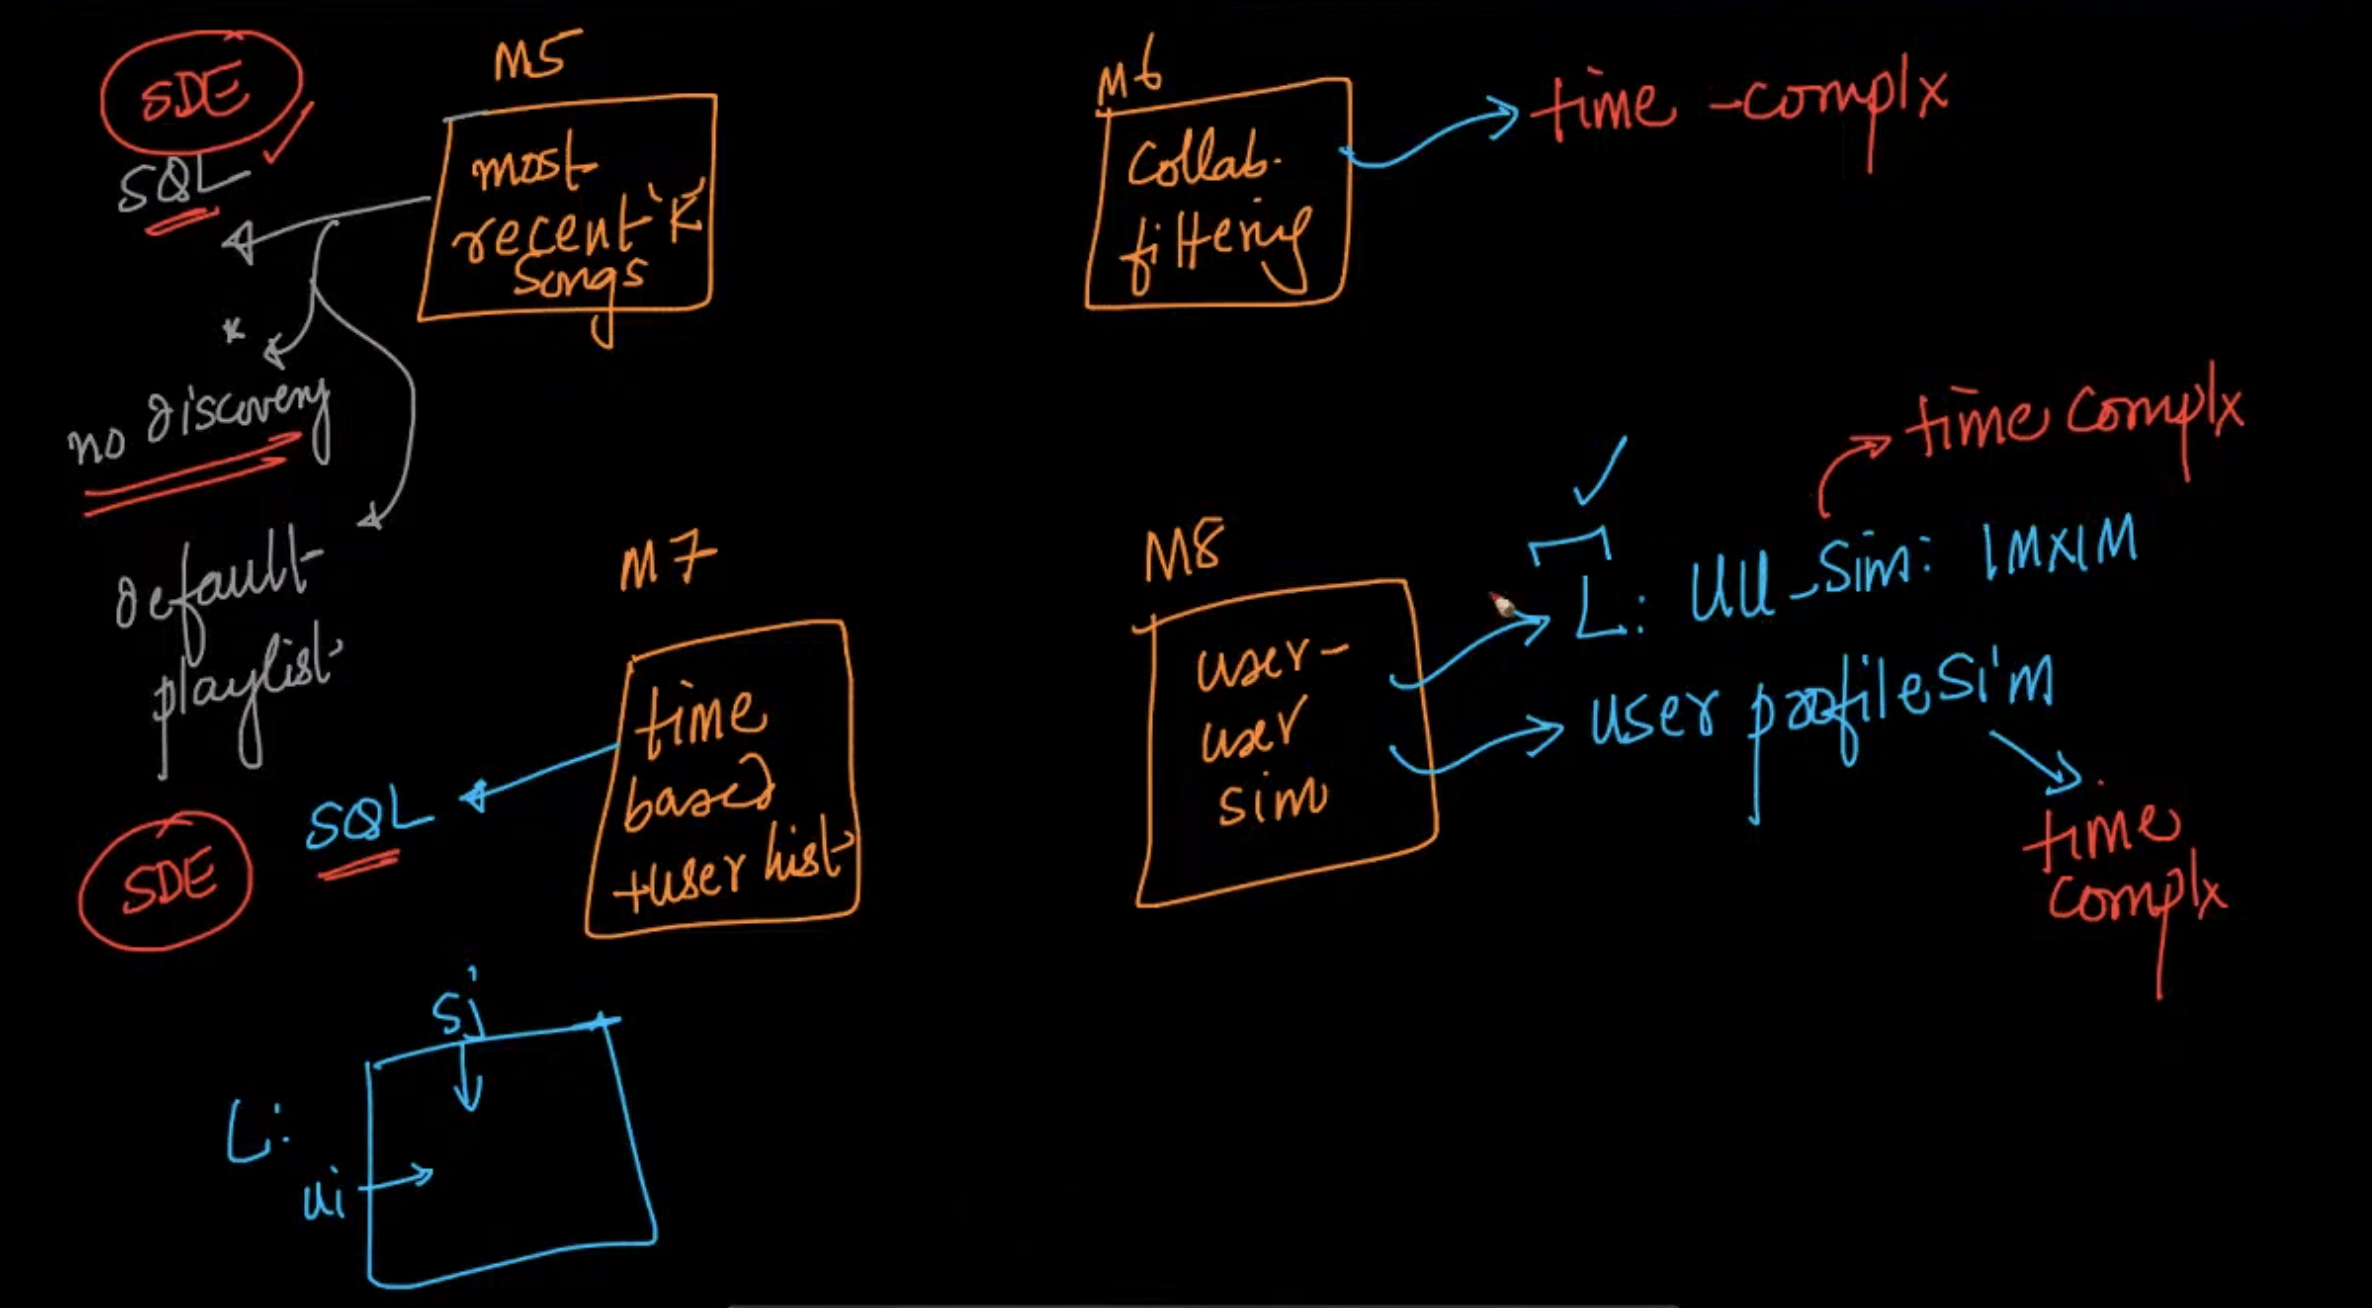 SDE
SQL
M5
most
recent 'K'
songs
no discovery
default
playlist
M6
Collab.
filtering
time-complx
M7
time
based
+user hist
SQL
SDE
M8
user-
user
sim
L: UU_Sim: 1MX1M
time complx
user profile Sim
time
complx
Sj
L:
ui